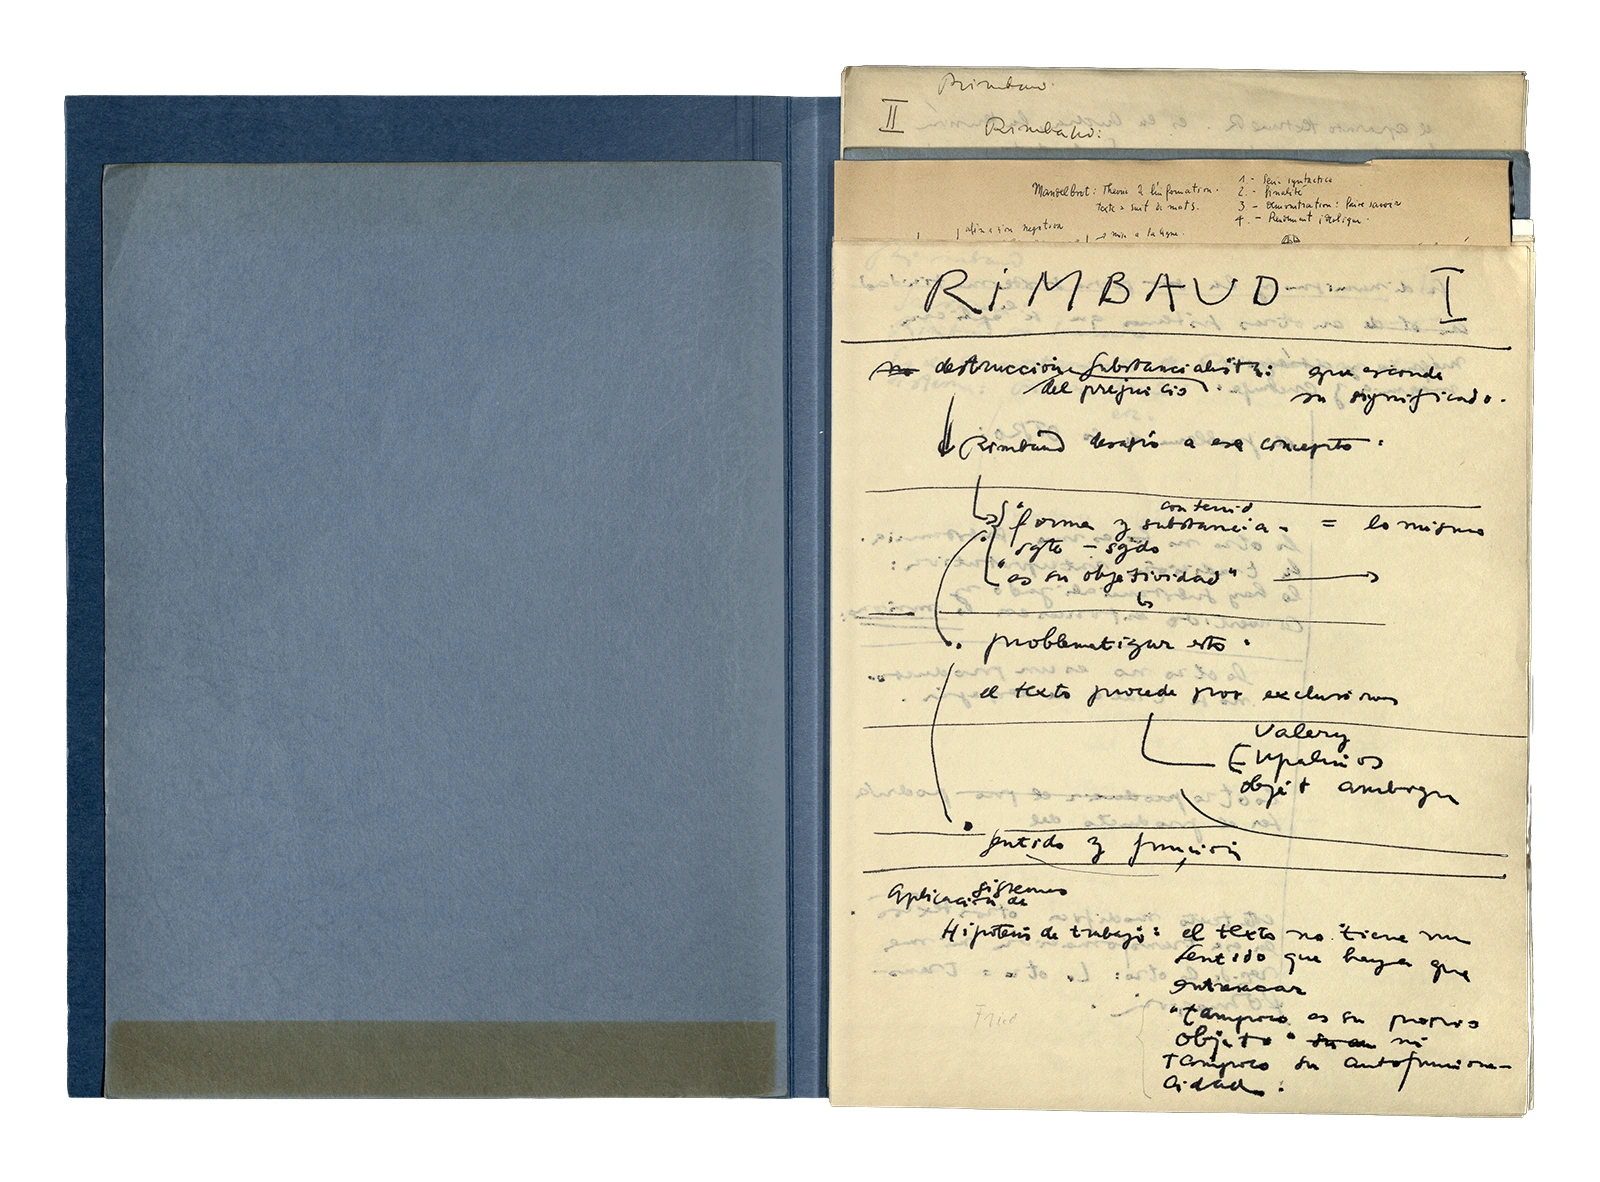 Rimbaud
II
Rimbaud:
Mandelbrot: Theorie de l'information.
texte = suit de mots.
1.- Sens syntactico
2.- finalité
3.- Demonstration: faire savoir
4.- Rendement
afirmacion negativa
RIMBAUD I
destruccion substancialista: que esconde
del prejuicio su significado.
Rimbaud desafio a ese concepto:
contenid
"forma y substancia - = lo mismo
"sgte - sgdo
"es su objetividad"
problematizar esto.
el texto procede por exclusiones
Valery
Eupalinos
objet ambigu
sentido y funcion
sistemas
Aplicacion de
Hipotesis de trabajo: el texto no tiene un
sentido que haya que
"tampoco es su propio
objeto" ni
tampoco su autofunciona-
cidad.